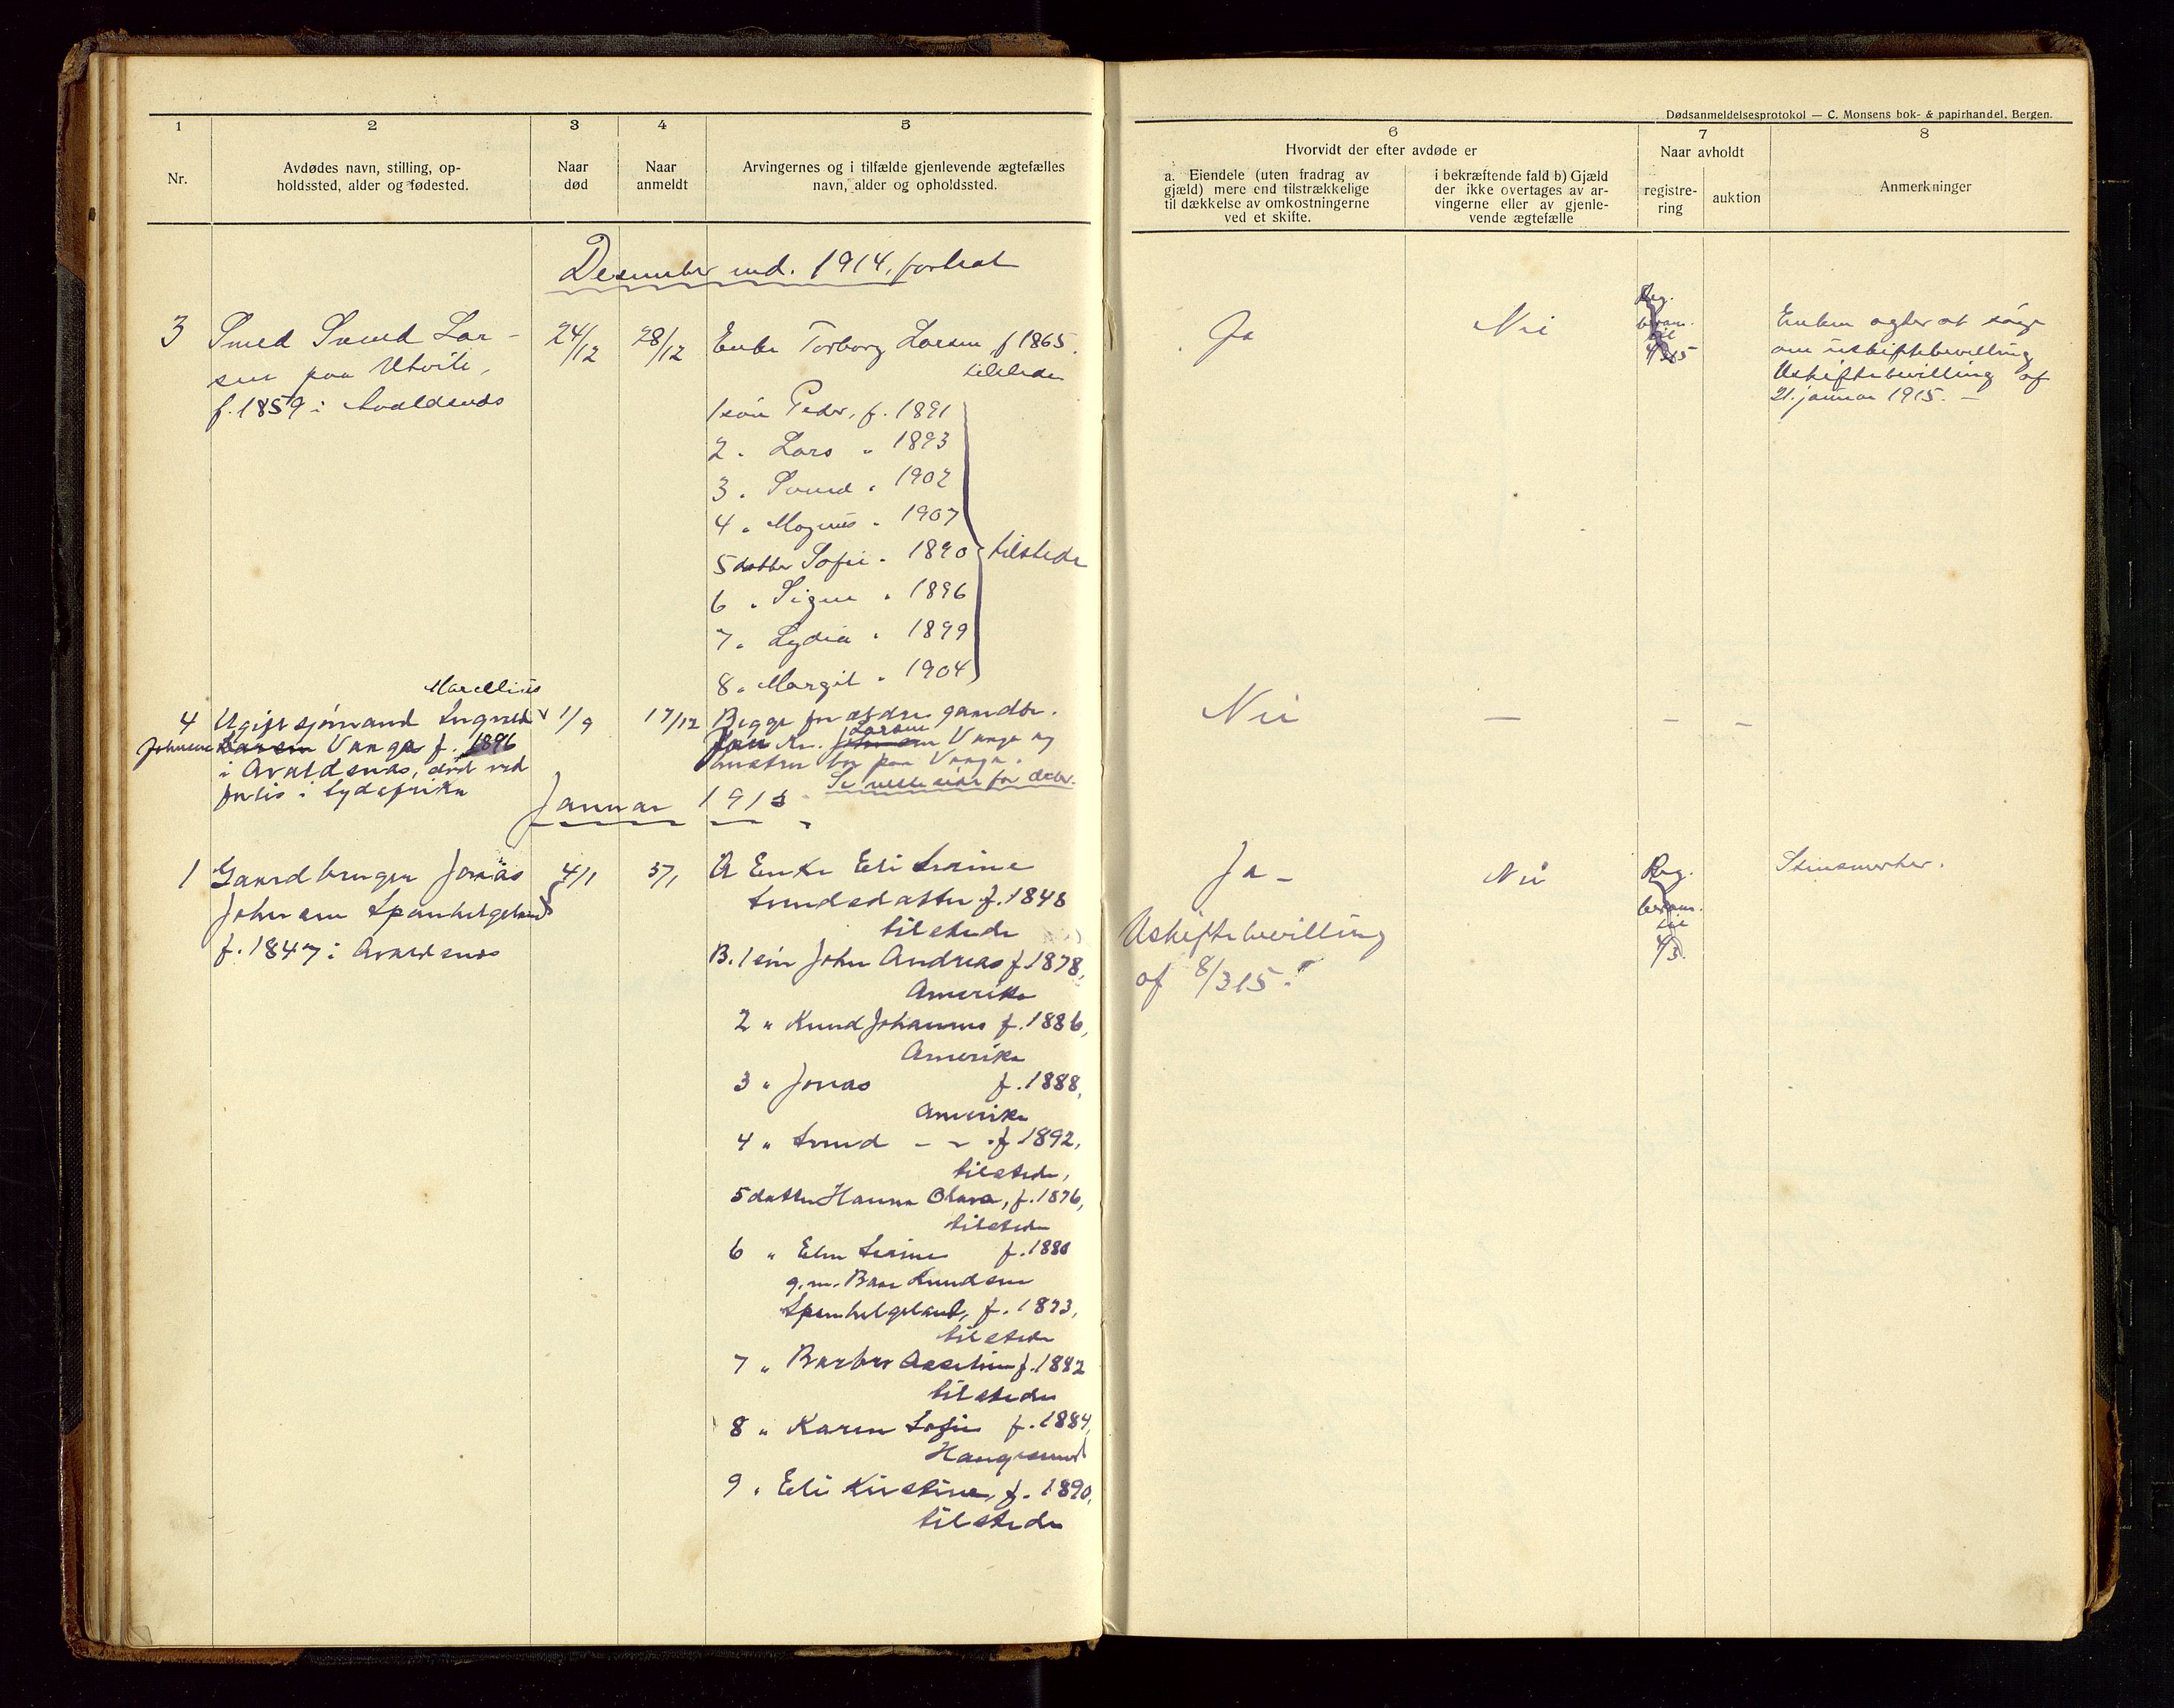 Dødsanmeldelsesprotokol — C. Monsens bok- & papirhandel, Bergen.
1 2 3 4 5
Nr.
Avdødes navn, stilling, op-
holdssted, alder og fødested.
Naar
død
Naar
anmeldt
Arvingernes og i tilfælde gjenlevende ægtefælles
navn, alder og opholdssted.
6 7 8
Hvorvidt der efter avdøde er
a. Eiendele (uten fradrag av
gjæld) mere end tilstrækkelige
til dækkelse av omkostningerne
ved et skifte.
i bekræftende fald b) Gjæld
der ikke overtages av ar-
vingerne eller av gjenle-
vende ægtefælle
Naar avholdt
registre-
ring
auktion
Anmerkninger
Desember md. 1914, fortsat
3 Smed Svend Lar-
sen paa Utvik,
f. 1859 i Avaldsnes
24/12 28/12
Enke Torborg Larsen f 1865.
tilstede
1 søn Peder, f. 1891
2 " Lars " 1893
3 " Svend " 1902
4 " Magnus " 1907
5 datter Sofie " 1890 tilstede
6 " Signe " 1896
7 " Lydia " 1899
8 " Margit " 1904
Ja Nei
Reg.
beram.
til
4/3 15
Enken agter at søge
om uskiftebevilling
Uskiftebevilling af
21. januar 1915. —
Marellius
4 Ugift sjømand Ingvald
Johnsen Larsen Vanga f. 1896
i Avaldsnes, død ved
i Sydafrika
1/9 17/12
Begge forældre
Larsen
Vanga og
hustru bor paa Vanga.
Se neste side for
Nei — — —
Januar 1915
1 Gaardbruger Jonas
Johnsen Spanhelgeland
f. 1847 i Avaldsnes
4/1 5/1
A Enke Eli Serine
Svendsdatter f. 1848
tilstede
B. 1 søn John Andreas f. 1878,
Amerika
2 " Knud Johannes f. 1886,
Amerika
3 " Jonas f. 1888,
Amerika
4 " Svend — — f 1892,
tilstede,
5 datter Hanna Olava, f. 1876,
tilstede
6 " Elen Serine f. 1880
g. m. Baar Knudsen
Spanhelgeland, f. 1873,
tilstede
7 " Barbro f. 1882
tilstede
8 " Karen Sofie f. 1884,
Haugesund
9 " Eli Kirstine, f. 1890,
tilstede
Ja —
Uskiftebevilling
af 8/3 15.
Nei
Reg.
beram.
til
4/3.